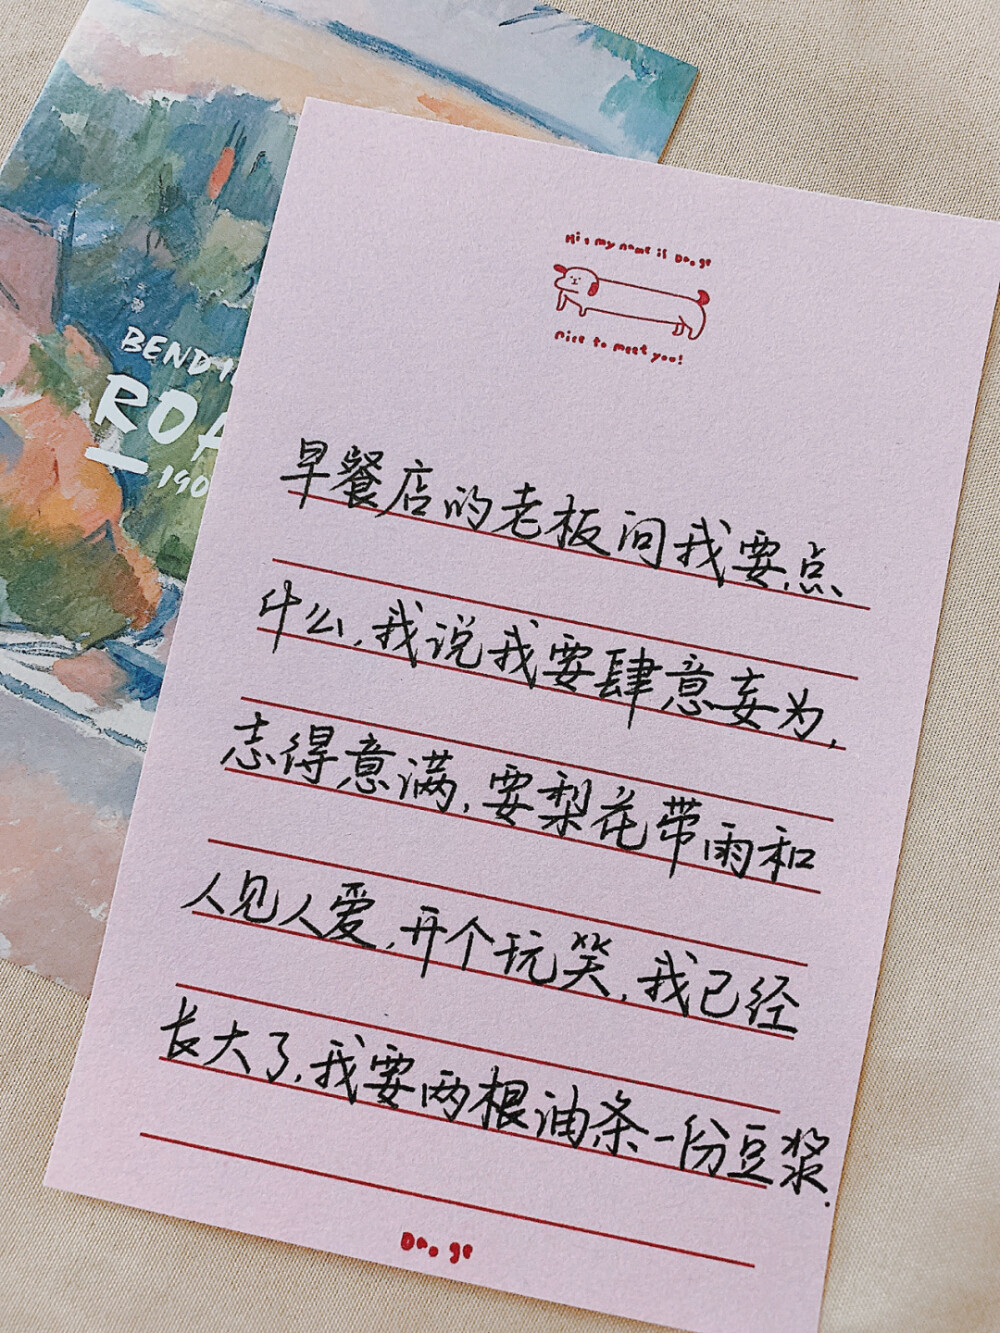 Hi, my name is Da.ge
nice to meet you!
BEND
ROA
190
早餐店的老板问我要点
什么,我说我要肆意妄为,
志得意满,要梨花带雨和
人见人爱,开个玩笑,我已经
长大了,我要两根油条一份豆浆.
Da.ge